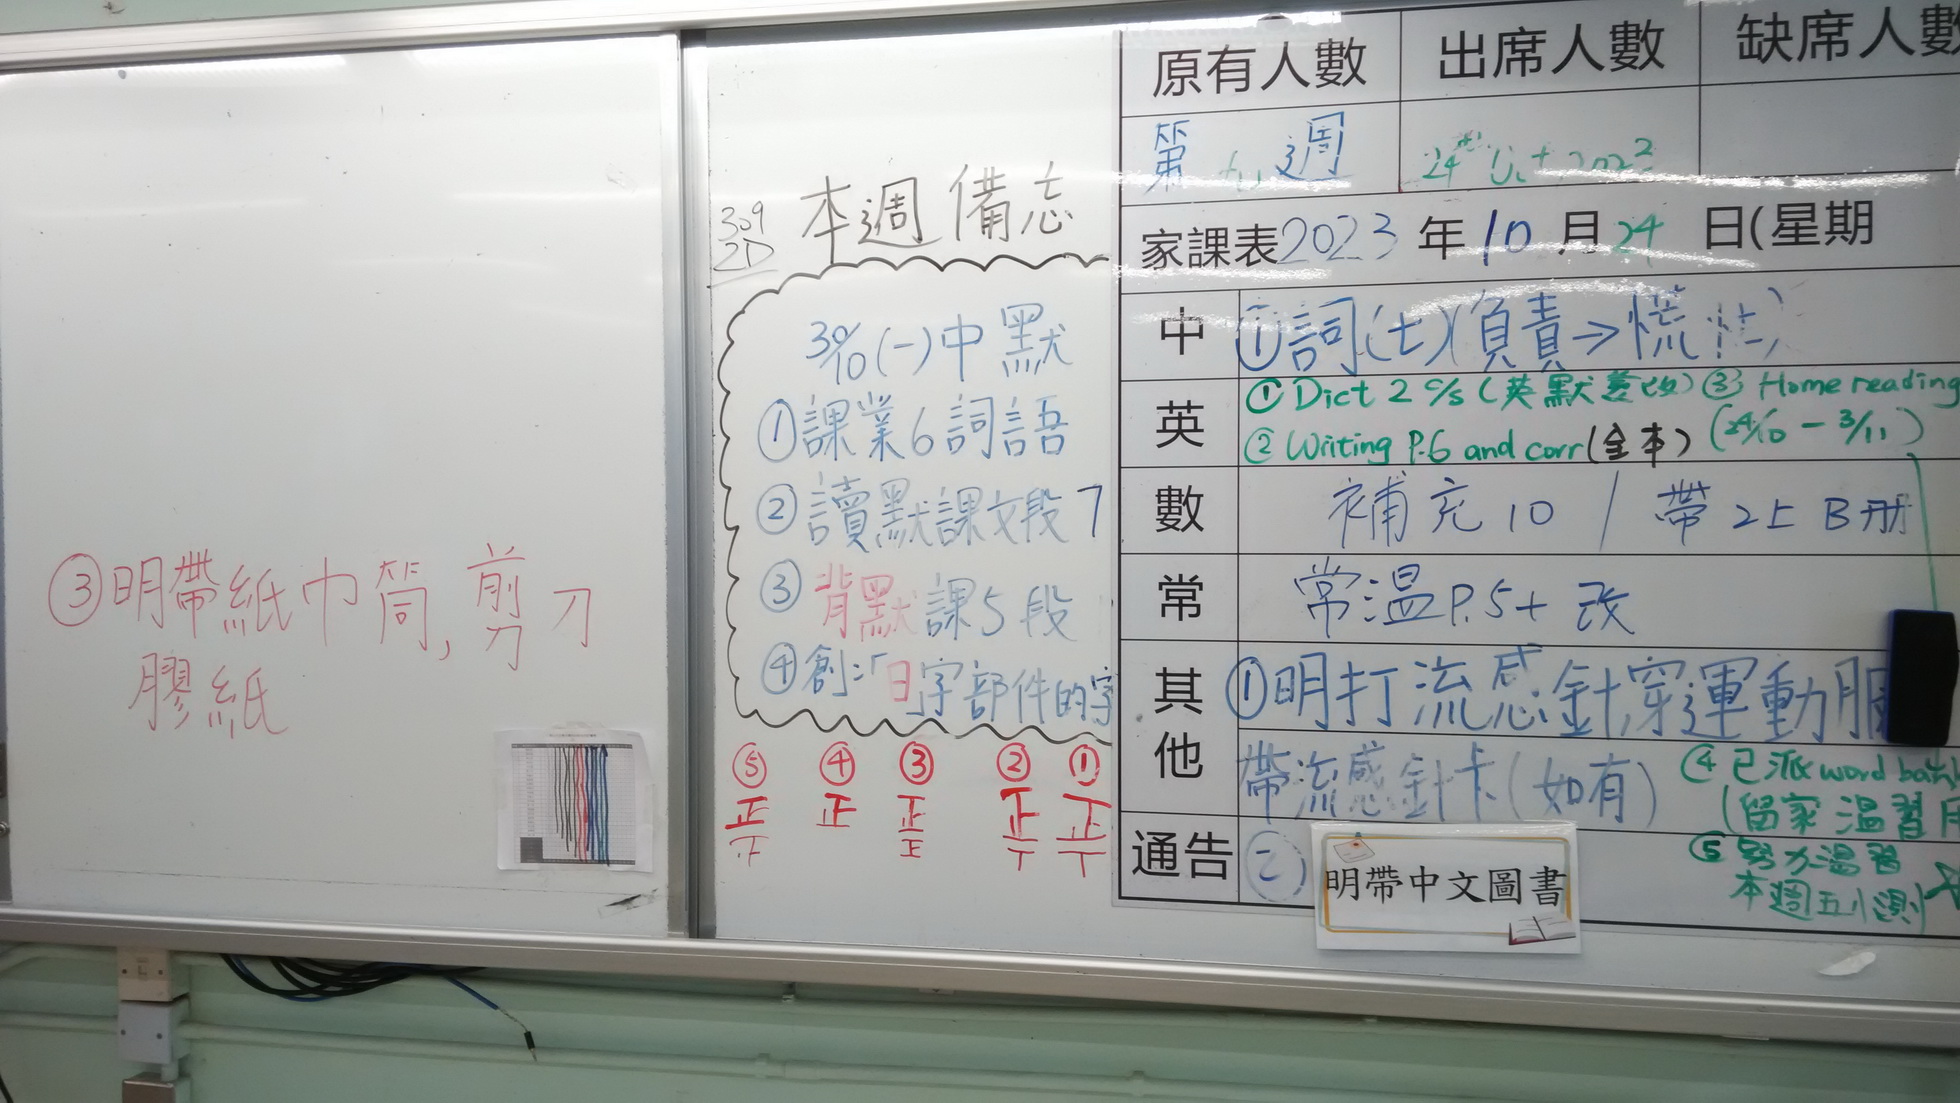 ③明帶紙巾筒,剪刀
膠紙
309
2D
本週備忘
30/10(一)中默
①課業6詞語
②讀默課文段7
③背默課5段
④創:「日」字部件的字
⑤ ④ ③ ② ①
正 正 正 正 正
原有人數 出席人數 缺席人數
第 週 24th
家課表2023年10月24日(星期
中 ①詞(七)(負責→慌忙)
英 ①Dict 2 c/s (英默簽改) ③ Home reading
②Writing P.6 and corr(全本) (24/10-3/11)
數 補充10 / 帶2上B冊
常 常溫P.5+改
其他 ①明打流感針,穿運動服
帶流感針卡(如有) ④已派word bank
(留家溫習用
通告 ② ⑤努力溫習
本週五小測
明帶中文圖書